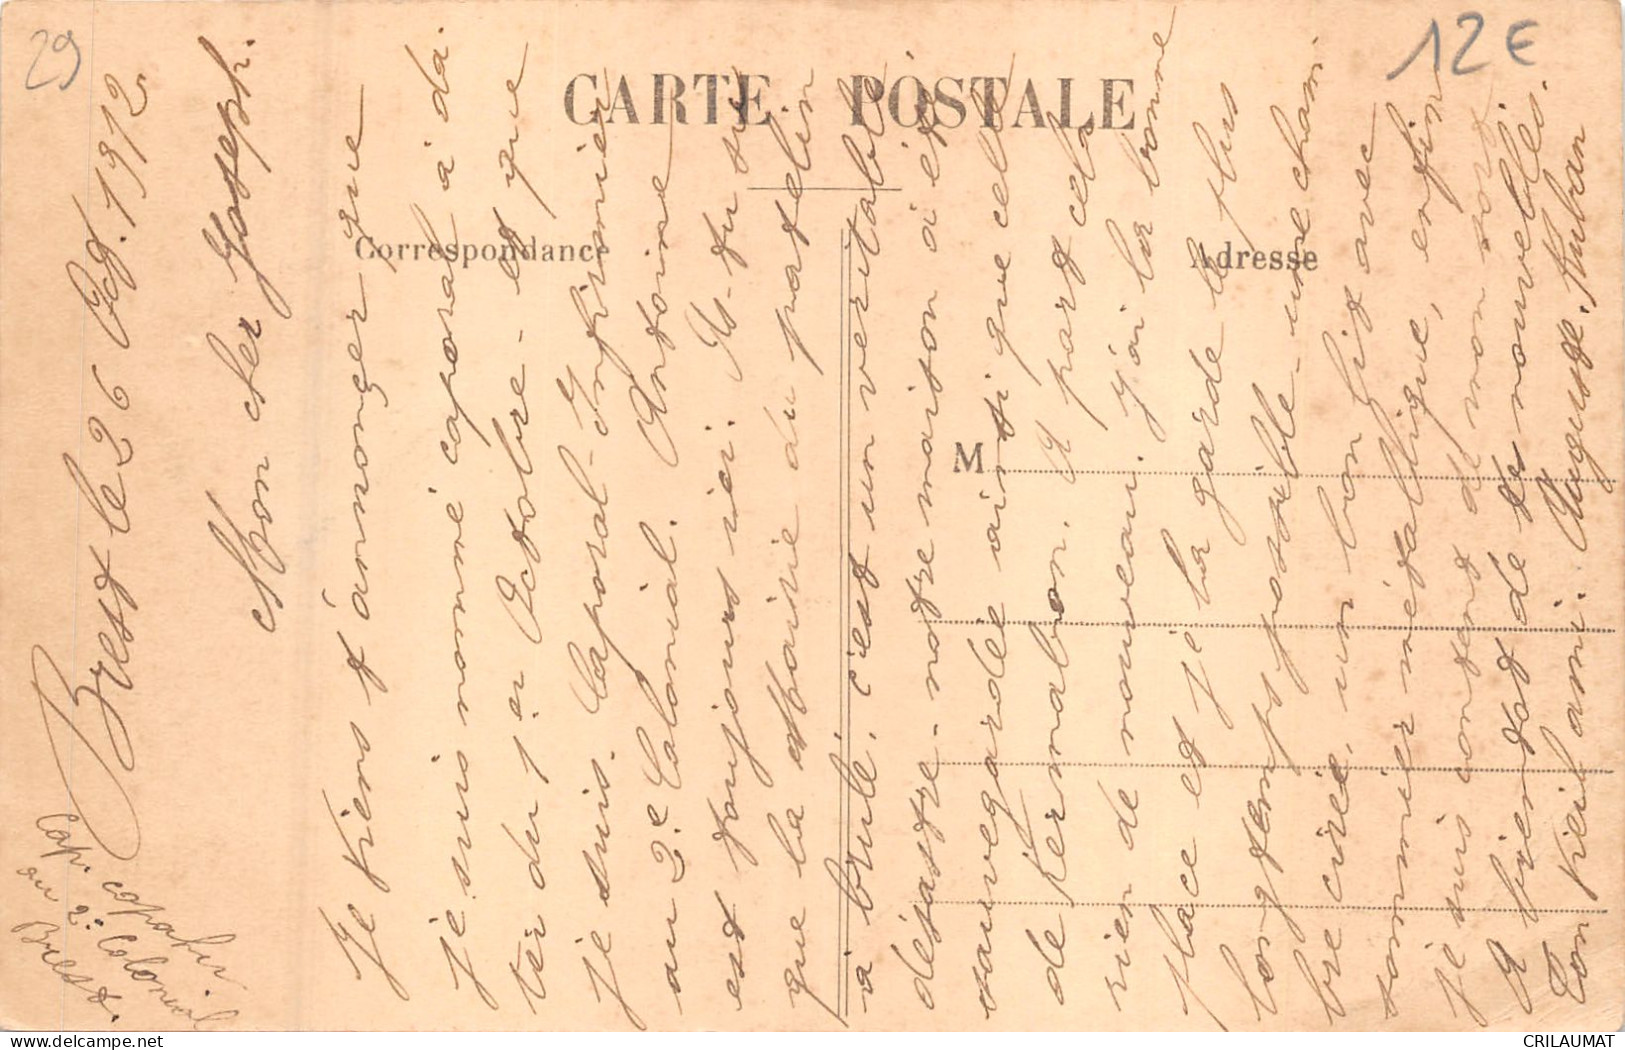 29
12 €
CARTE POSTALE
Correspondance
Adresse
M
Brest le 26 Oct. 1912
Mon cher Joseph.
Je viens t'annonçer que
je suis nommé caporal à da.
ter du 1er Octobre - et que
je suis. Caporal-Infirmier
au 2e Colonial. Antoine
est toujours ici. As-tu su
que la Mairie du patelin
à brulé. c'est un véritable
désastre - notre maison a été
sauvegardée ainsi que celle
de Kermabon. A part cela
rien de nouveau. J'ai la bonne
place et je la garde le plus
longtemps possible - une cham
bre cirée, un bon lit avec
sommier métallique, enfin
je suis content de mon sort
A bientôt de tes nouvelles.
Ton vieil ami. Auguste.
Cap.
au 2e Colonial
Brest.
CRILAUMAT